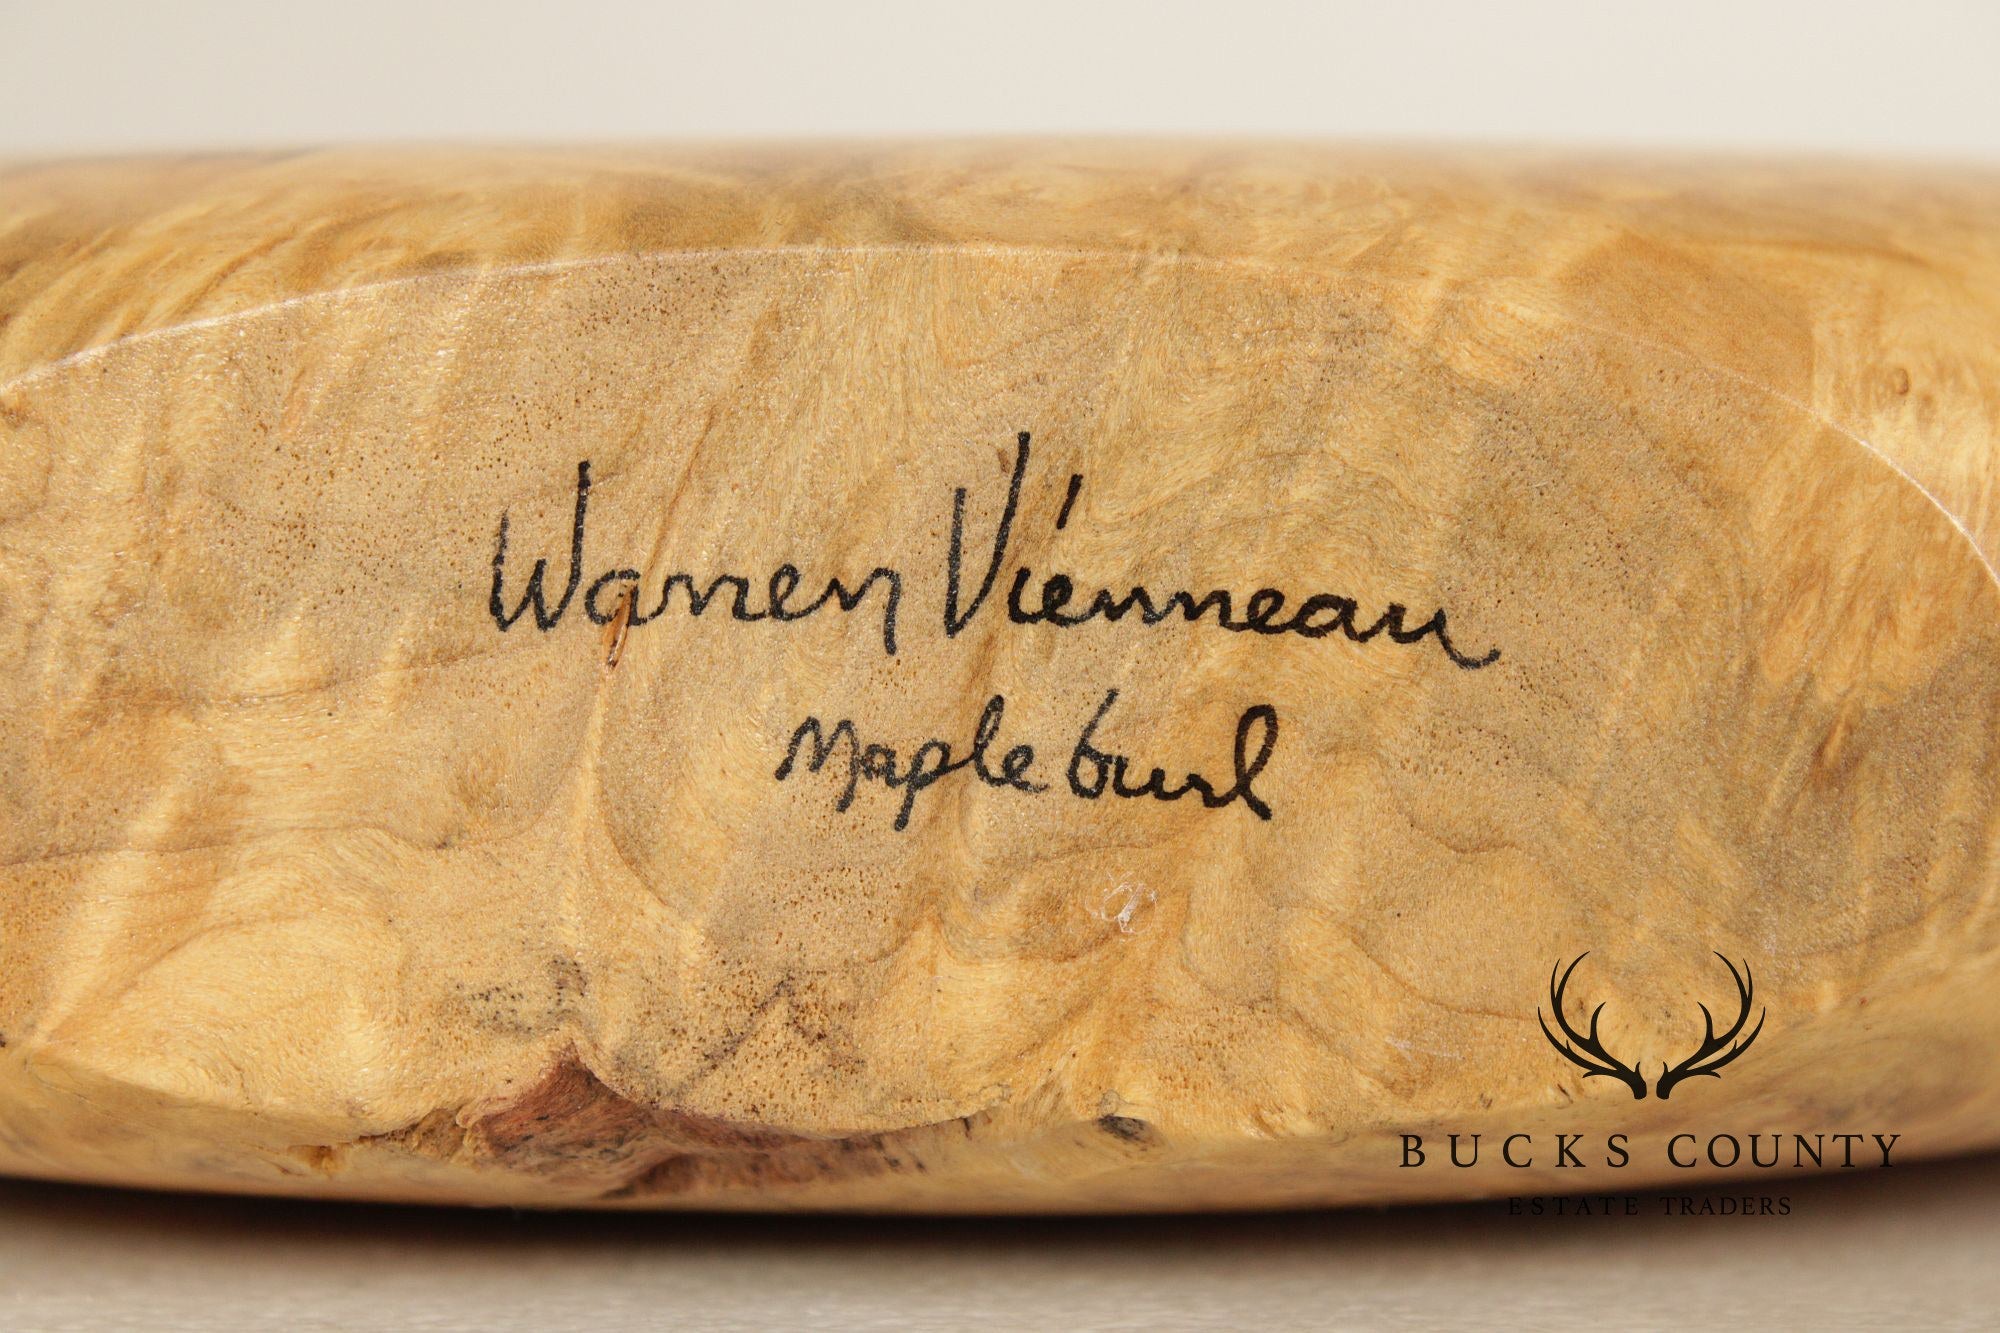 Warren Vienneau
Maple burl
BUCKS COUNTY
ESTATE TRADERS